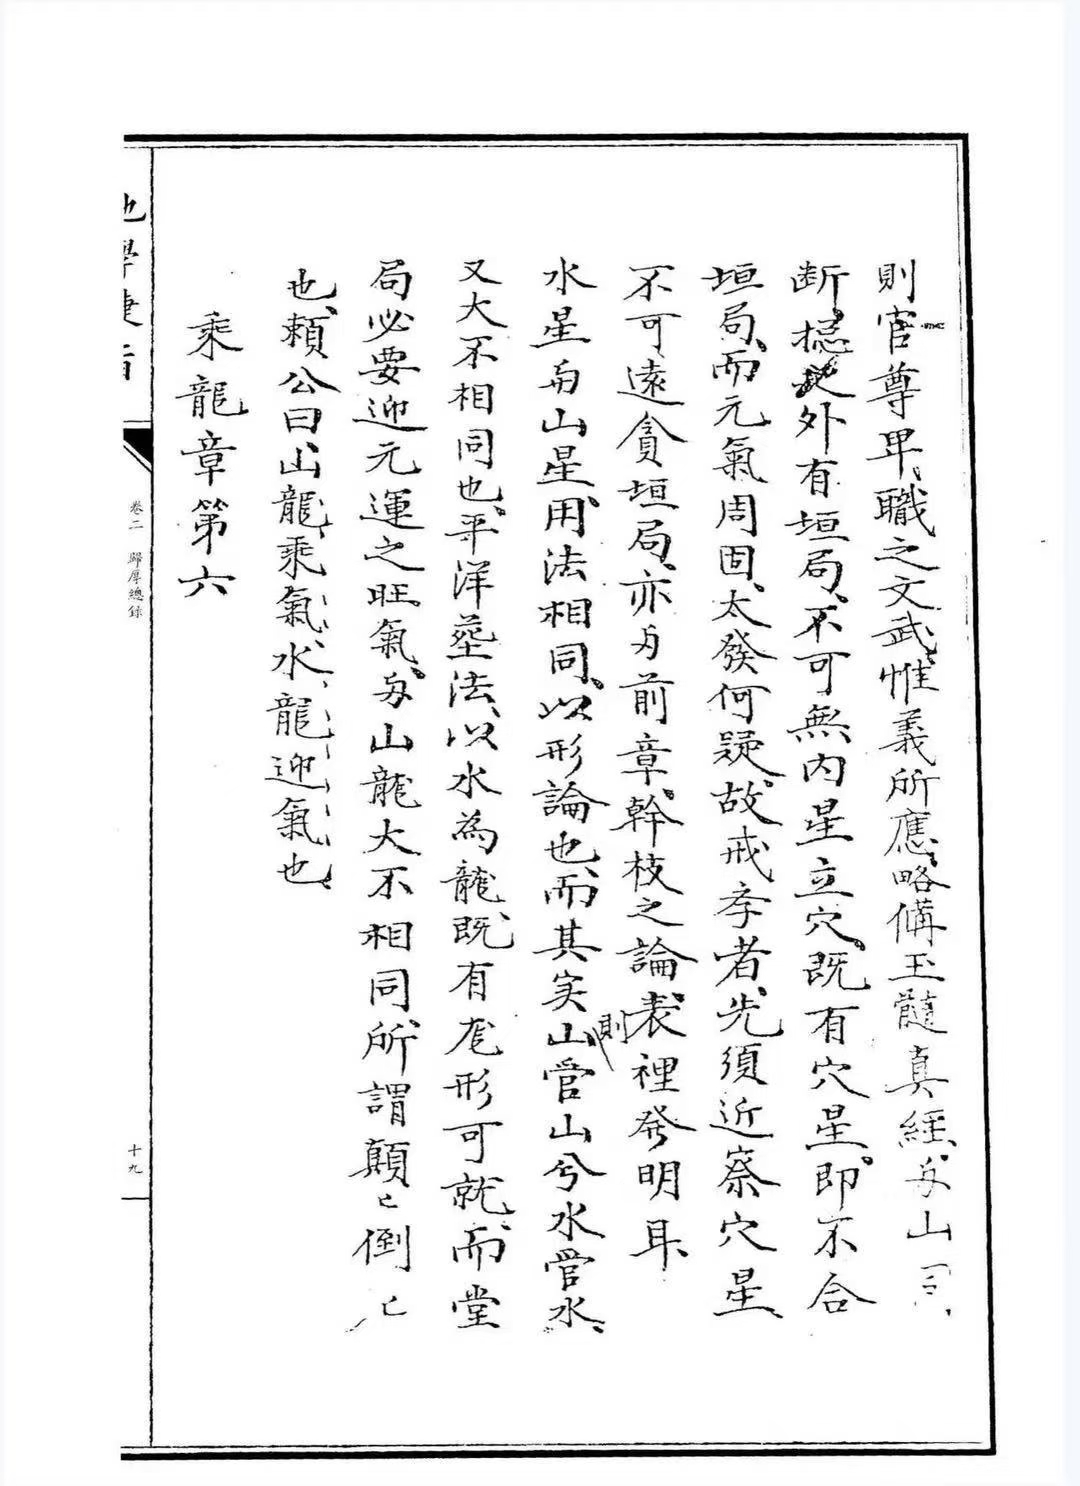 則官尊卑、職之文武、惟義所應、略俻玉髓真經、与山同
断、揔之外有垣局、不可無内星立穴、既有穴星、即不合
垣局、而元氣周固、太發何疑、故戒孝者、先須近察穴星
不可遠貪垣局、亦与前章、幹枝之論、表裡発明耳、
水星与山星、用法相同、以形論也、而其实則山管山兮水管水、
又大不相同也、平洋塟法、以水為龍、既有龙形可就、而堂
局必要迎元運之旺氣、与山龍大不相同、所謂顛〻倒〻
也、賴公曰、山龍乘氣、水龍迎氣也、
乘龍章第六
地學捷旨
卷二 歸厚總錄
十九